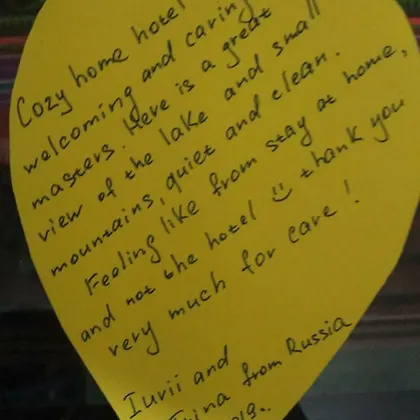 Cozy home hotel
welcoming and caring
masters. Here is a great
view of the lake and small
mountains, quiet and clean.
Feeling like from stay at home,
and not the hotel ☺ thank you
very much for care!
Iurii and
from Russia